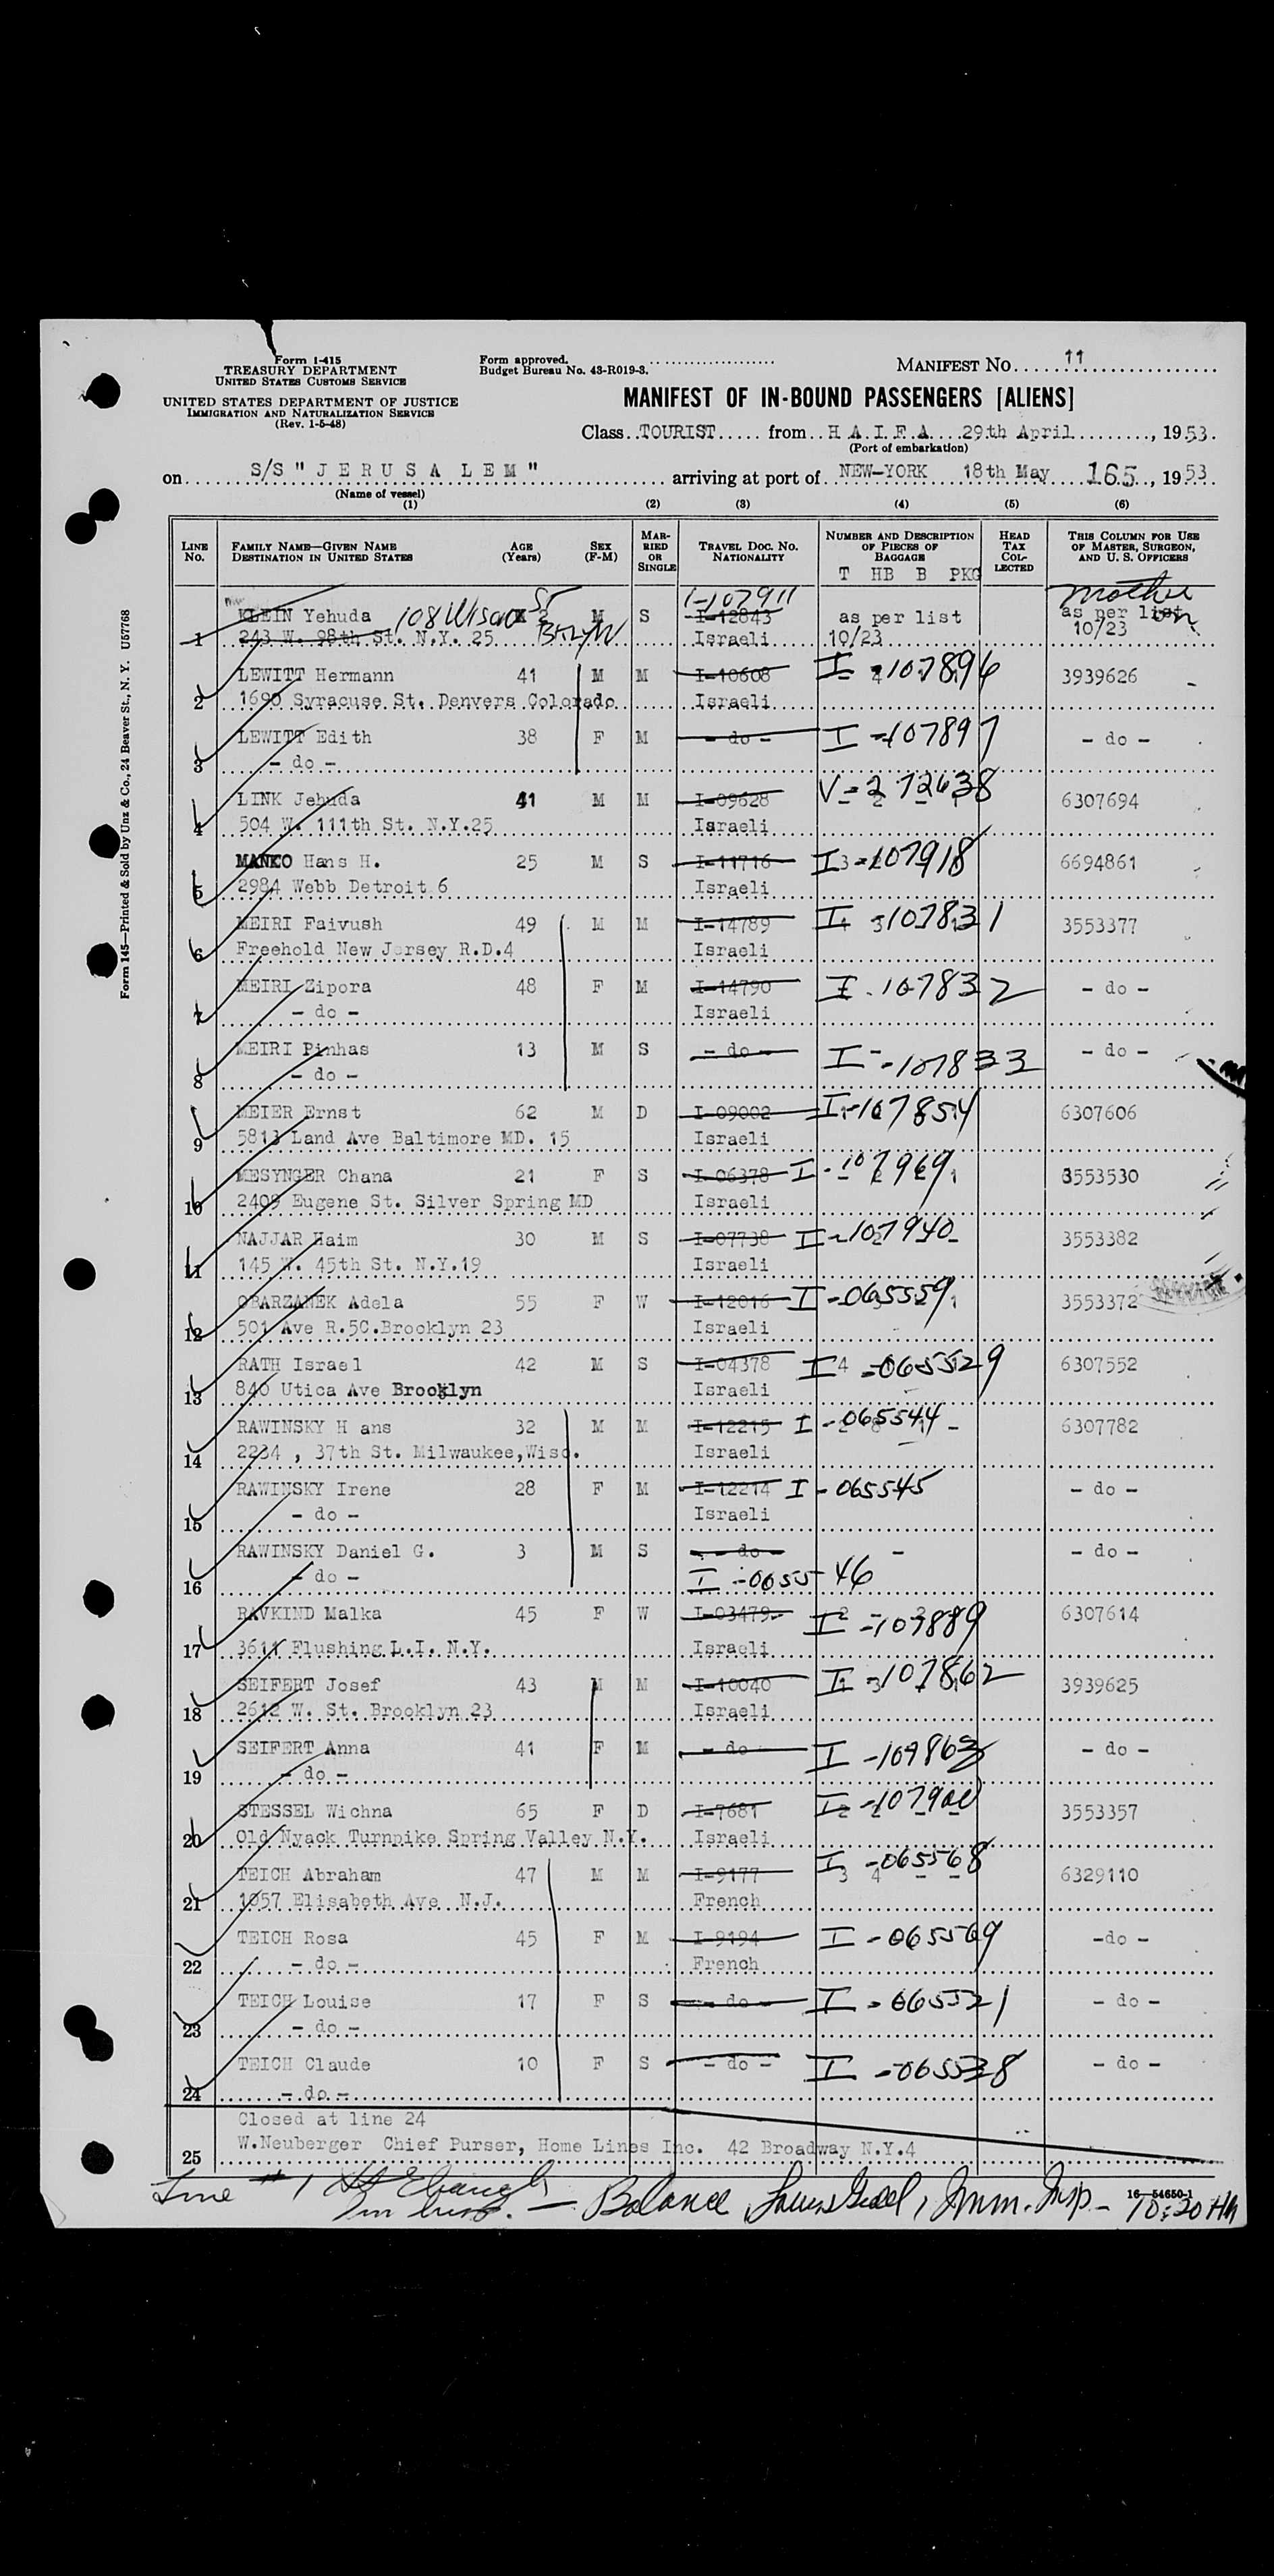 Form I-415
TREASURY DEPARTMENT
UNITED STATES CUSTOMS SERVICE
UNITED STATES DEPARTMENT OF JUSTICE
IMMIGRATION AND NATURALIZATION SERVICE
(Rev. 1-5-48)
Form approved.
Budget Bureau No. 43-R019-3.
MANIFEST NO. 11
MANIFEST OF IN-BOUND PASSENGERS [ALIENS]
Class TOURIST from H A I F A 29th April, 1953.
(Port of embarkation)
on S/S "J E R U S A L E M" arriving at port of NEW-YORK 18th May 165, 1953
(Name of vessel)
(1) (2) (3) (4) (5) (6)
LINE NO. FAMILY NAME—GIVEN NAME DESTINATION IN UNITED STATES AGE (Years) SEX (F-M) MARRIED OR SINGLE TRAVEL DOC. NO. NATIONALITY NUMBER AND DESCRIPTION OF PIECES OF BAGGAGE HEAD TAX COLLECTED THIS COLUMN FOR USE OF MASTER, SURGEON, AND U. S. OFFICERS
T HB B PKG
I-107911 mother
KLEIN Yehuda 108 Wilson St M S I-12843 as per list as per list
1 243 W. 98th St. N.Y. 25 Bklyn Israeli 10/23 10/23
LEWITT Hermann 41 M M I-10608 I-107896 3939626 -
2 1690 Syracuse St. Denvers Colorado Israeli
LEWITT Edith 38 F M - do - I-107897 - do -
3 - do -
LINK Jehuda 41 M M I-09628 V-272638 6307694
4 504 W. 111th St. N.Y.25 Israeli
MANKO Hans H. 25 M S I-11716 I-107918 6694861
5 2984 Webb Detroit 6 Israeli
MEIRI Faivush 49 M M I-14789 I-107831 3553377
6 Freehold New Jersey R.D.4 Israeli
MEIRI Zipora 48 F M I-14790 I-107832 - do -
7 - do - Israeli
MEIRI Pinhas 13 M S - do - I-107833 - do -
8 - do -
MEIER Ernst 62 M D I-09002 I-107854 6307606
9 5813 Land Ave Baltimore MD. 15 Israeli
MESYNGER Chana 21 F S I-06378 I-107969 3553530
10 2409 Eugene St. Silver Spring MD Israeli
NAJJAR Haim 30 M S I-07738 I-107940 3553382
11 145 W. 45th St. N.Y.19 Israeli
OBARZANEK Adela 55 F W I-12016 I-065559 3553372
12 501 Ave R.5C.Brooklyn 23 Israeli
RATH Israel 42 M S I-04378 I-065529 6307552
13 840 Utica Ave Brooklyn Israeli
RAWINSKY H ans 32 M M I-12215 I-065544 6307782
14 2234 , 37th St. Milwaukee,Wisc. Israeli
RAWINSKY Irene 28 F M I-12214 I-065545 - do -
15 - do - Israeli
RAWINSKY Daniel G. 3 M S - do - - - do -
16 - do - I-065546
RAVKIND Malka 45 F W I-03479 I-107889 6307614
17 3611 Flushing L.I. N.Y. Israeli
SEIFERT Josef 43 M M I-10040 I-107862 3939625
18 2612 W. St. Brooklyn 23 Israeli
SEIFERT Anna 41 F M - do - I-107863 - do -
19 - do -
STESSEL Wichna 65 F D I-7681 I-107900 3553357
20 Old Nyack Turnpike Spring Valley N.Y. Israeli
TEICH Abraham 47 M M I-9177 I-065568 6329110
21 1057 Elisabeth Ave N.J. French
TEICH Rosa 45 F M I-9194 I-065569 -do -
22 - do - French
TEICH Louise 17 F S - do - I-065521 - do -
23 - do -
TEICH Claude 10 F S - do - I-065538 - do -
24 - do -
Closed at line 24
25 W.Neuberger Chief Purser, Home Lines Inc. 42 Broadway N.Y.4
16—54650-1
Line #1 — Balance, Imm. Insp - 10:20 AM
Form 145—Printed & Sold by Unz & Co., 24 Beaver St., N. Y. U57768